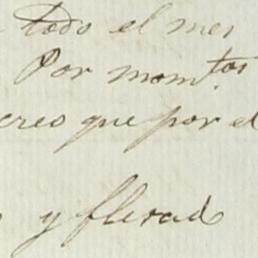 todo el mes
Por mom.tos
creo que por el
y flerad